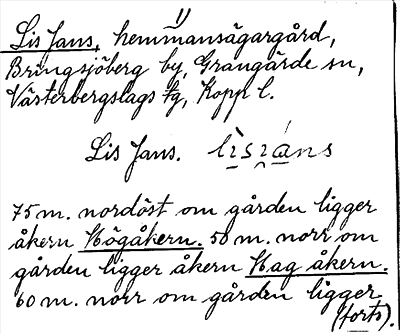 Lis Jans, hemmansägargård,
Bringsjöberg by, Grangärde sn,
Västerbergslags tg, Kopp l.
Lis Jans.
75 m. nordöst om gården ligger
åkern Högåkern. 50 m. norr om
gården ligger åkern Hagåkern.
60 m. norr om gården ligger
(forts).